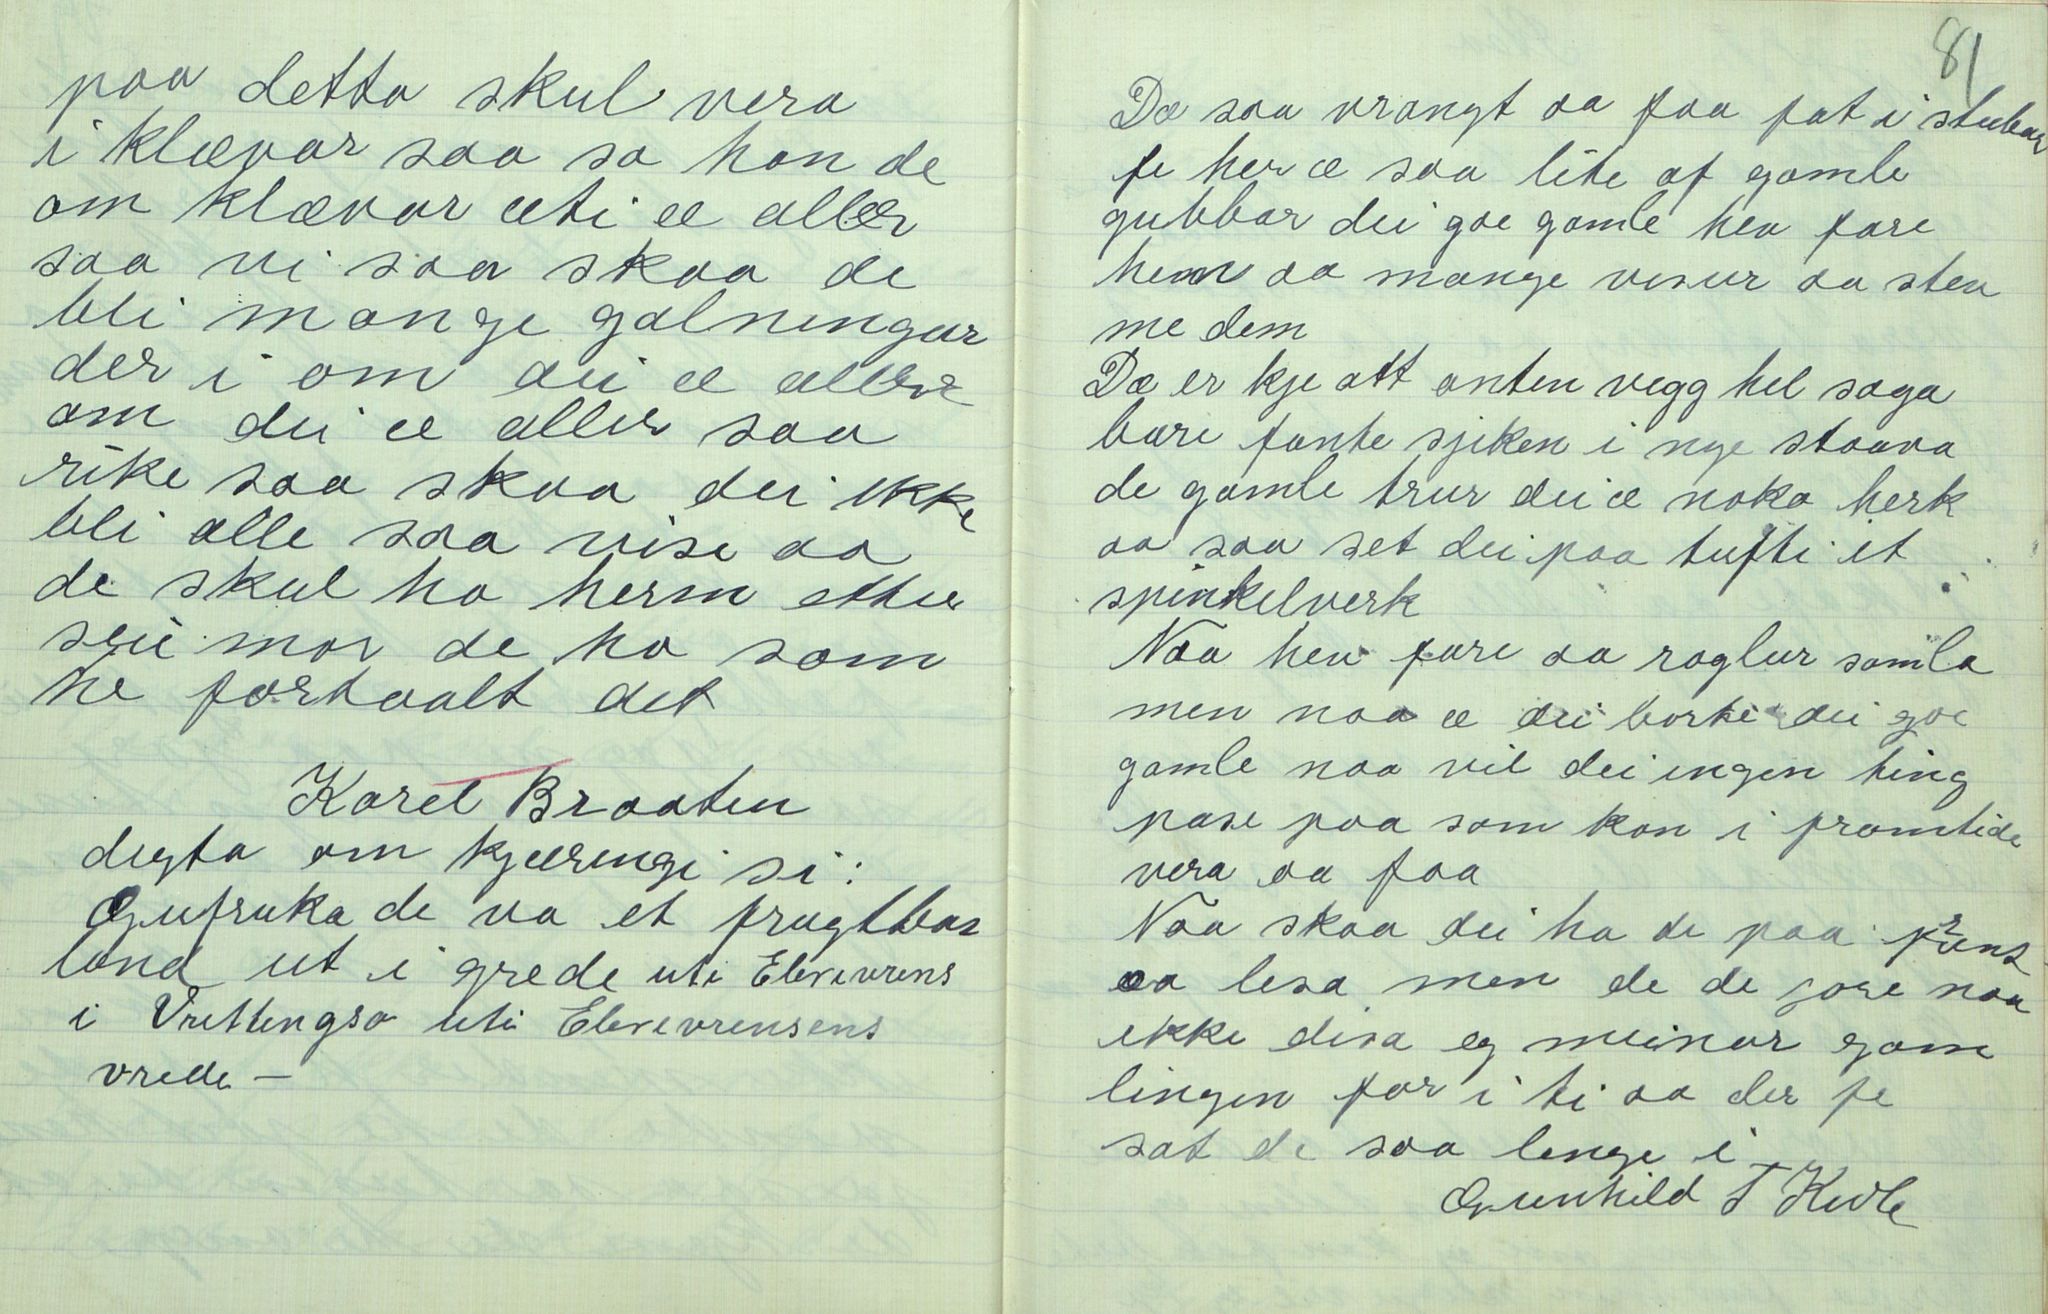 paa detta skul vera
i klævar saa sa han de
om klævar uti æ aller
saa vi saa skaa de
bli mange galningar
der i om dei æ aller
om dei æ aller saa
rike saa skaa dei ikke
bli alle saa vise aa
de skul ha herm etter
seii mor de ha som
he fortaalt det
Karel Braaten
digta om kjæringi si:
Gufruka de va et frugtbar
land ut i grede uti Elverens
i Vrettingso uti
vrede –
81
Dæ saa vrangt aa faa fat i stubar
fe her æ saa lite af gamle
gubbar dei goe gamle hev fare
hem aa mange visur aa stev
me dem
Dæ er kje att anten vegg hel saga
bare fante sjiken i nye staava
de gamle trur dei æ noko herk
aa saa set dei paa tufti et
spinkelverk
Naa hev fare aa raglur samla
men naa æ dei borte dei goe
gamle naa vil dei ingen ting
pase paa som kan i framtide
vera aa faa
Naa skaa dei ha de paa prent
aa lesa men de de jore naa
ikke disa eg meinar gam
lingen for i ti aa der fe
sat de saa lenge i
Gunhild T Kivle